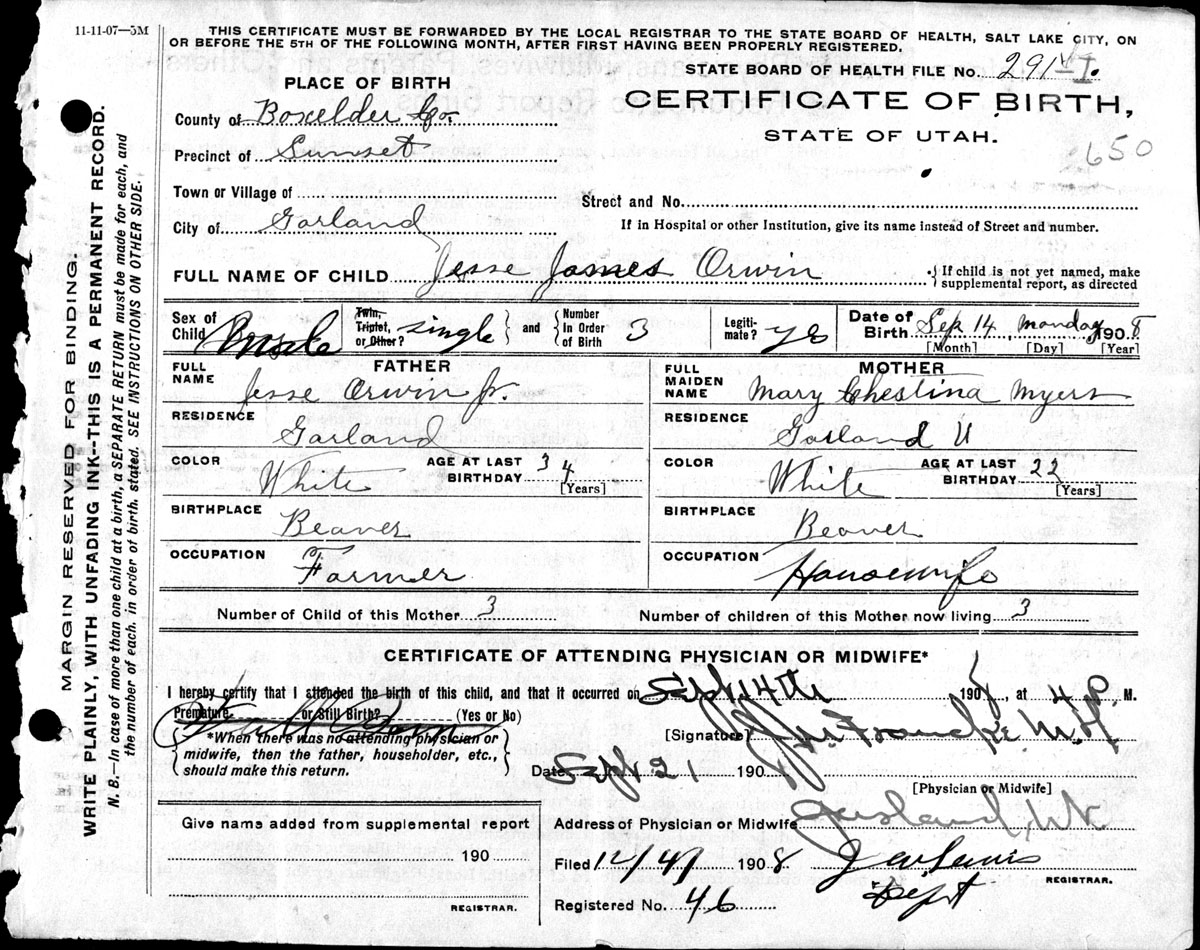 11-11-07—5M
THIS CERTIFICATE MUST BE FORWARDED BY THE LOCAL REGISTRAR TO THE STATE BOARD OF HEALTH, SALT LAKE CITY, ON
OR BEFORE THE 5TH OF THE FOLLOWING MONTH, AFTER FIRST HAVING BEEN PROPERLY REGISTERED.
STATE BOARD OF HEALTH FILE NO. 291
PLACE OF BIRTH
CERTIFICATE OF BIRTH,
STATE OF UTAH.
650
County of Boxelder Co.
Precinct of Sunset
Town or Village of
Street and No.
City of Garland
If in Hospital or other Institution, give its name instead of Street and number.
FULL NAME OF CHILD Jesse James Orwin
If child is not yet named, make
supplemental report, as directed
Sex of Child Male
Twin, Triplet, or Other? single
and Number In Order of Birth 3
Legitimate? yes
Date of Birth Sep 14, monday 1908
[Month] [Day] [Year]
FATHER
FULL NAME Jesse Orwin Jr.
RESIDENCE Garland
COLOR White
AGE AT LAST BIRTHDAY 34 [Years]
BIRTHPLACE Beaver
OCCUPATION Farmer
MOTHER
FULL MAIDEN NAME Mary Chestina Myers
RESIDENCE Garland U
COLOR White
AGE AT LAST BIRTHDAY 22 [Years]
BIRTHPLACE Beaver
OCCUPATION Housewife
Number of Child of this Mother 3
Number of children of this Mother now living 3
CERTIFICATE OF ATTENDING PHYSICIAN OR MIDWIFE*
I hereby certify that I attended the birth of this child, and that it occurred on Sept 14th 1908, at 4 P. M.
Premature or Still Birth? (Yes or No)
*When there was no attending physician or
midwife, then the father, householder, etc.,
should make this return.
[Signature] Francke M.D.
Date Sept 21 1908
[Physician or Midwife]
Give name added from supplemental report
190
REGISTRAR.
Address of Physician or Midwife Garland, Ut
Filed 12/4 1908
REGISTRAR.
Dept
Registered No. 46
MARGIN RESERVED FOR BINDING.
WRITE PLAINLY, WITH UNFADING INK--THIS IS A PERMANENT RECORD.
N. B.—In case of more than one child at a birth, a SEPARATE RETURN must be made for each, and
the number of each, in order of birth, stated. SEE INSTRUCTIONS ON OTHER SIDE.